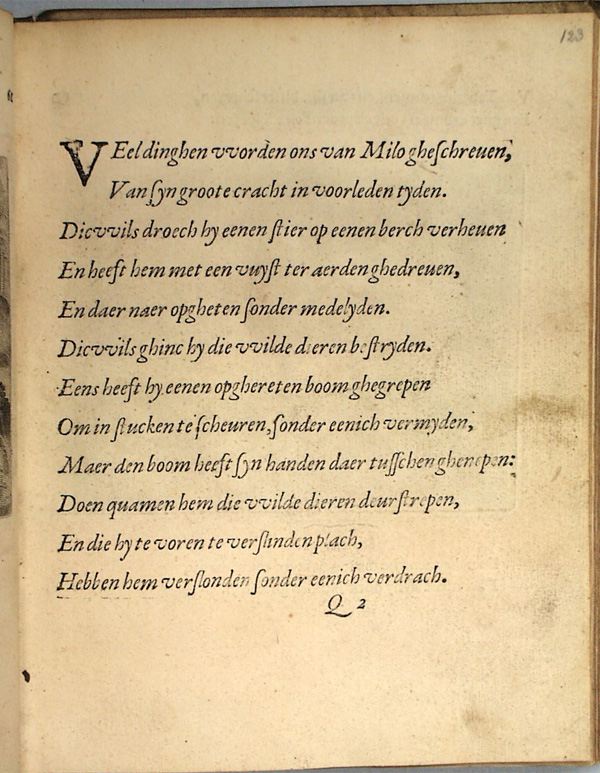 123
VEel dinghen vvorden ons van Milo gheſchreuen,
Van ſyn groote cracht in voorleden tyden.
Dicvvils droech hy eenen ſtier op eenen berch verheuen
En heeft hem met een vuyſt ter aerden ghedreuen,
En daer naer opgheten ſonder medelyden.
Dicvvils ghinc hy die vvilde dieren beſtryden.
Eens heeft hy eenen opghereten boom ghegrepen
Om in ſtucken te ſcheuren, ſonder eenich vermyden,
Maer den boom heeft ſyn handen daer tuſſchen ghenepen:
Doen quamen hem die vvilde dieren deurſtrepen,
En die hy te voren te verſlinden plach,
Hebben hem verſlonden ſonder eenich verdrach.
Q 2